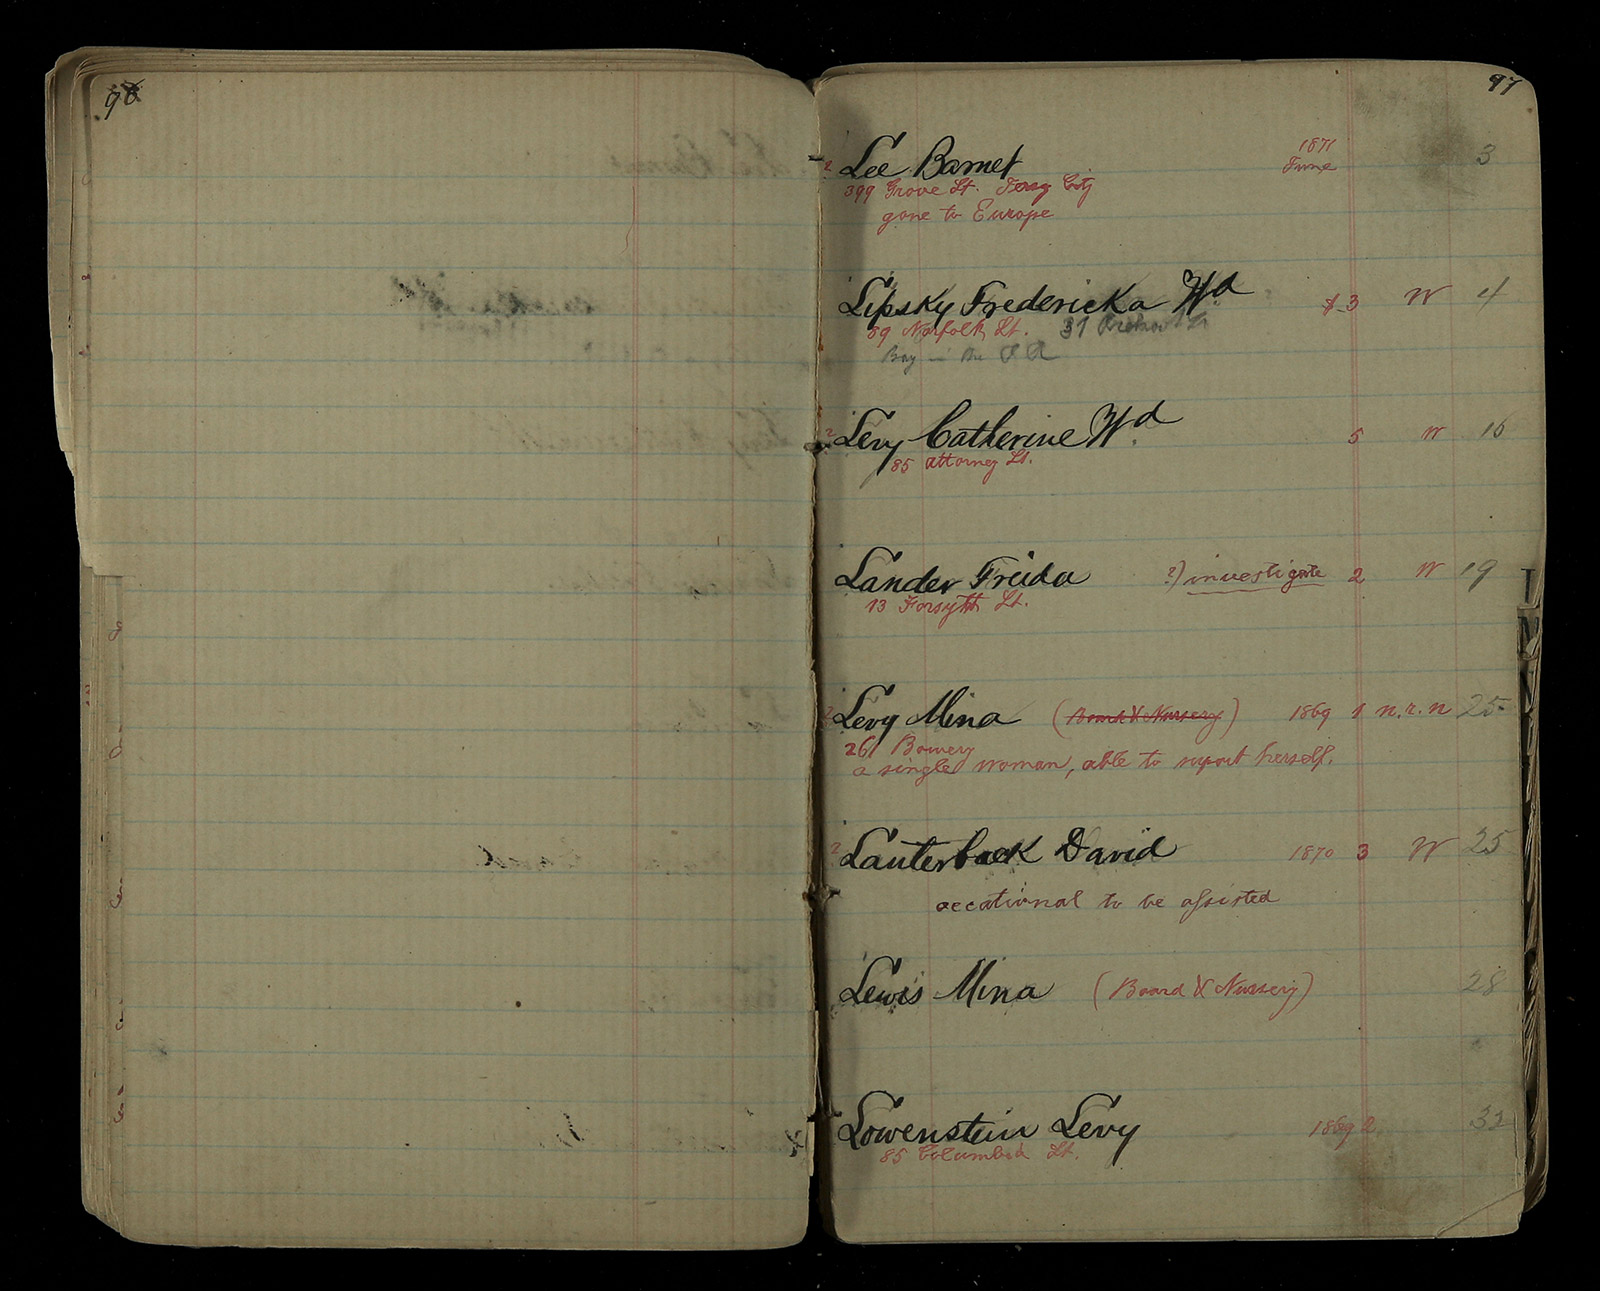 96
97
Lee Barnet 1871 June 3
399 Grove St. Jersy City
gone to Europe
Lipsky Fredericka Wd $ 3 W 4
89 Norfolk St. 37
Boy in the O A
Levy Catherine Wd 5 W 16
85 attorney St.
Lander Frieda ?) investigate 2 W 19
13 Forsyth St.
Levy Mina (Board & Nursery) 1869 1 n.r.n 25
261 Bowery
a single woman, able to suport herself.
Lauterback David 1870 3 W 25
occational to be assisted
Lewis Mina (Board & Nursery) 28
Lowenstein Levy 1869 2 32
85 Columbia St.